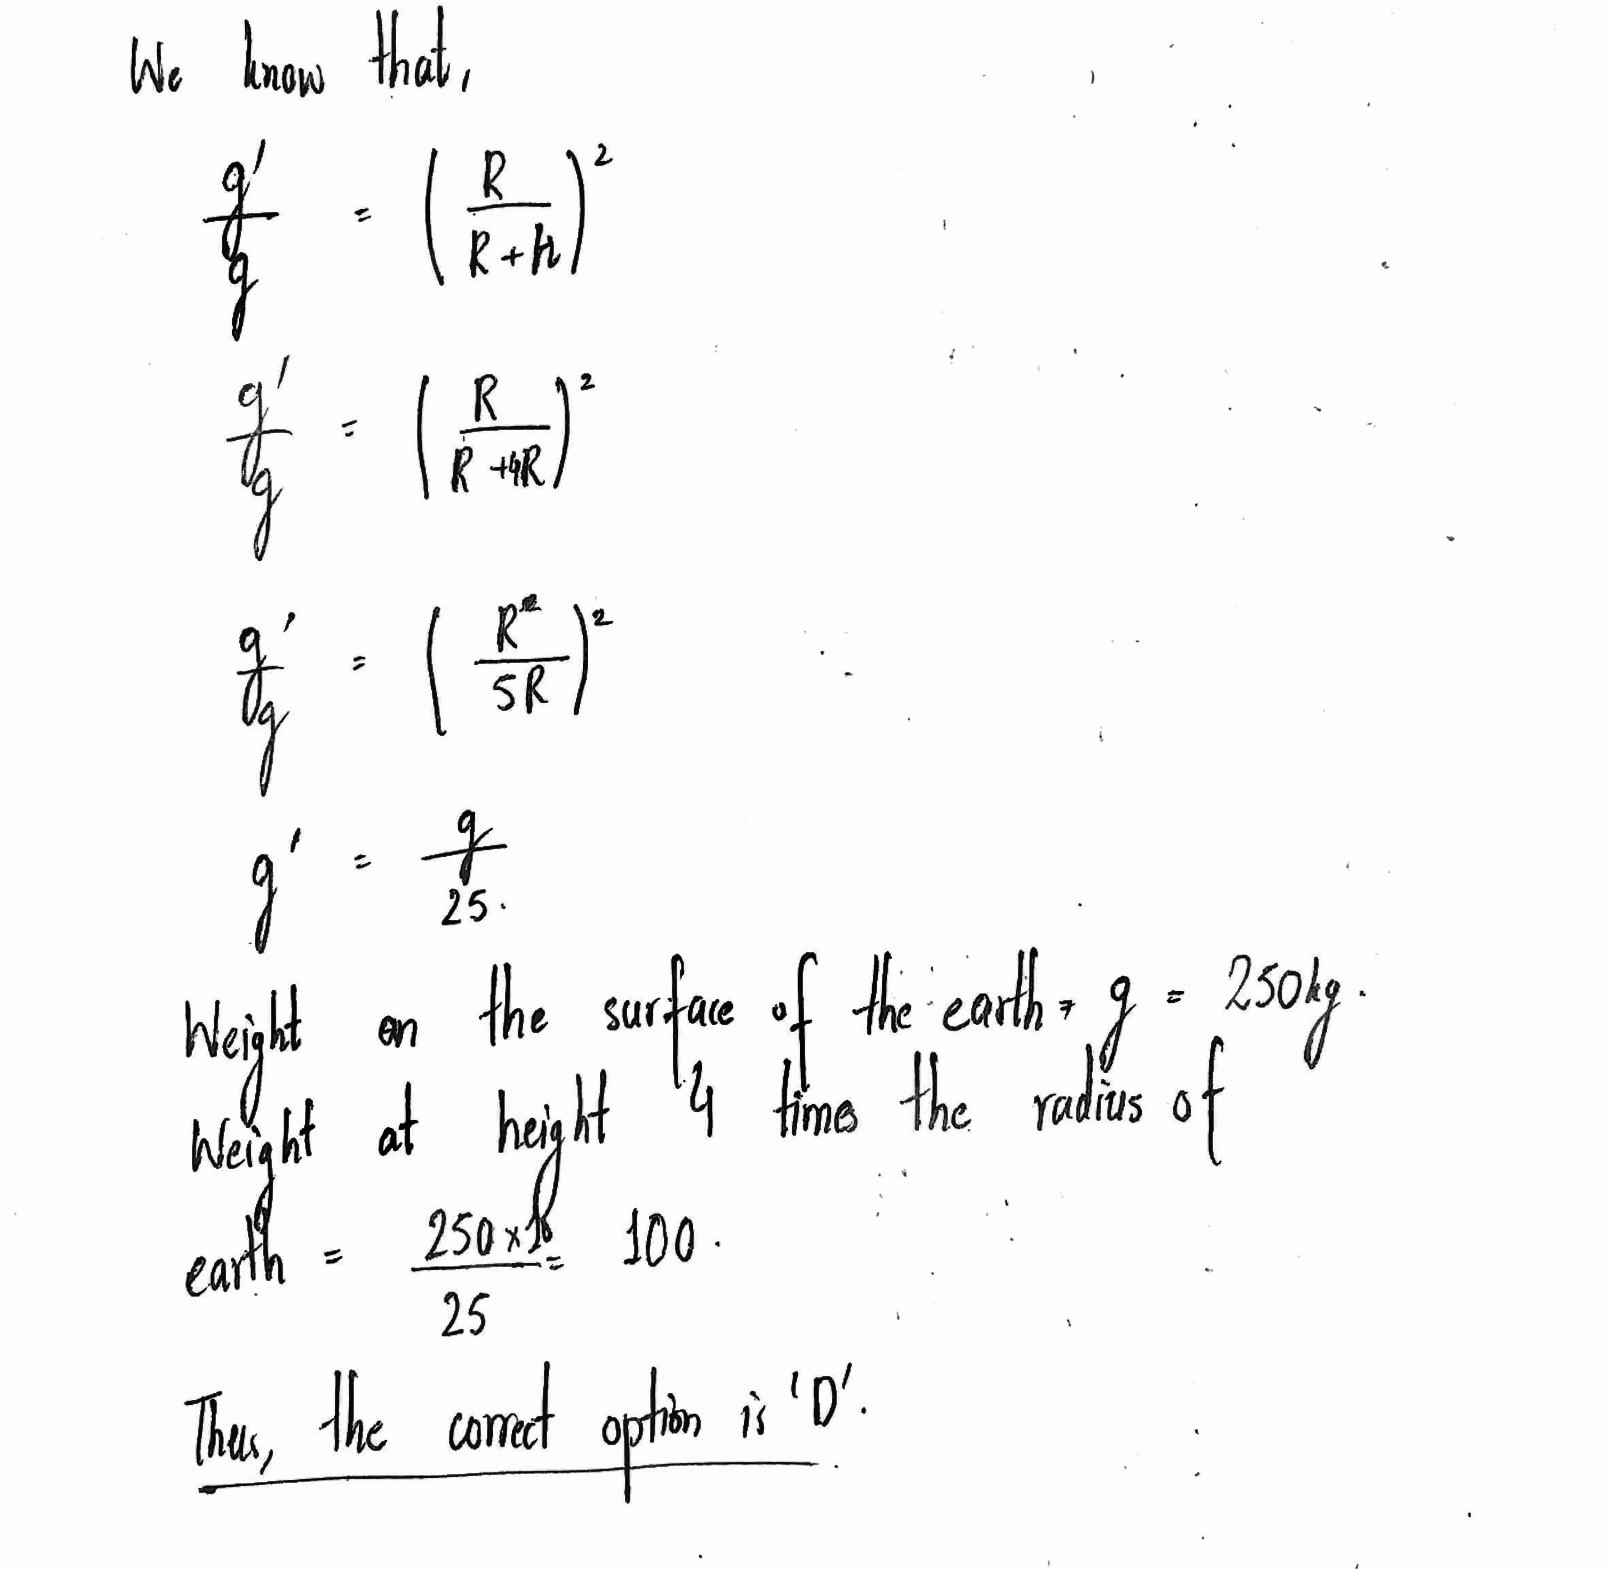 We know that,
g'/g = (R/(R+h))²
g'/g = (R/(R+4R))²
g'/g = (R/5R)²
g' = g/25.
Weight on the surface of the earth, g = 250kg.
Weight at height 4 times the radius of
earth = (250×10)/25 = 100.
Thus, the correct option is 'D'.